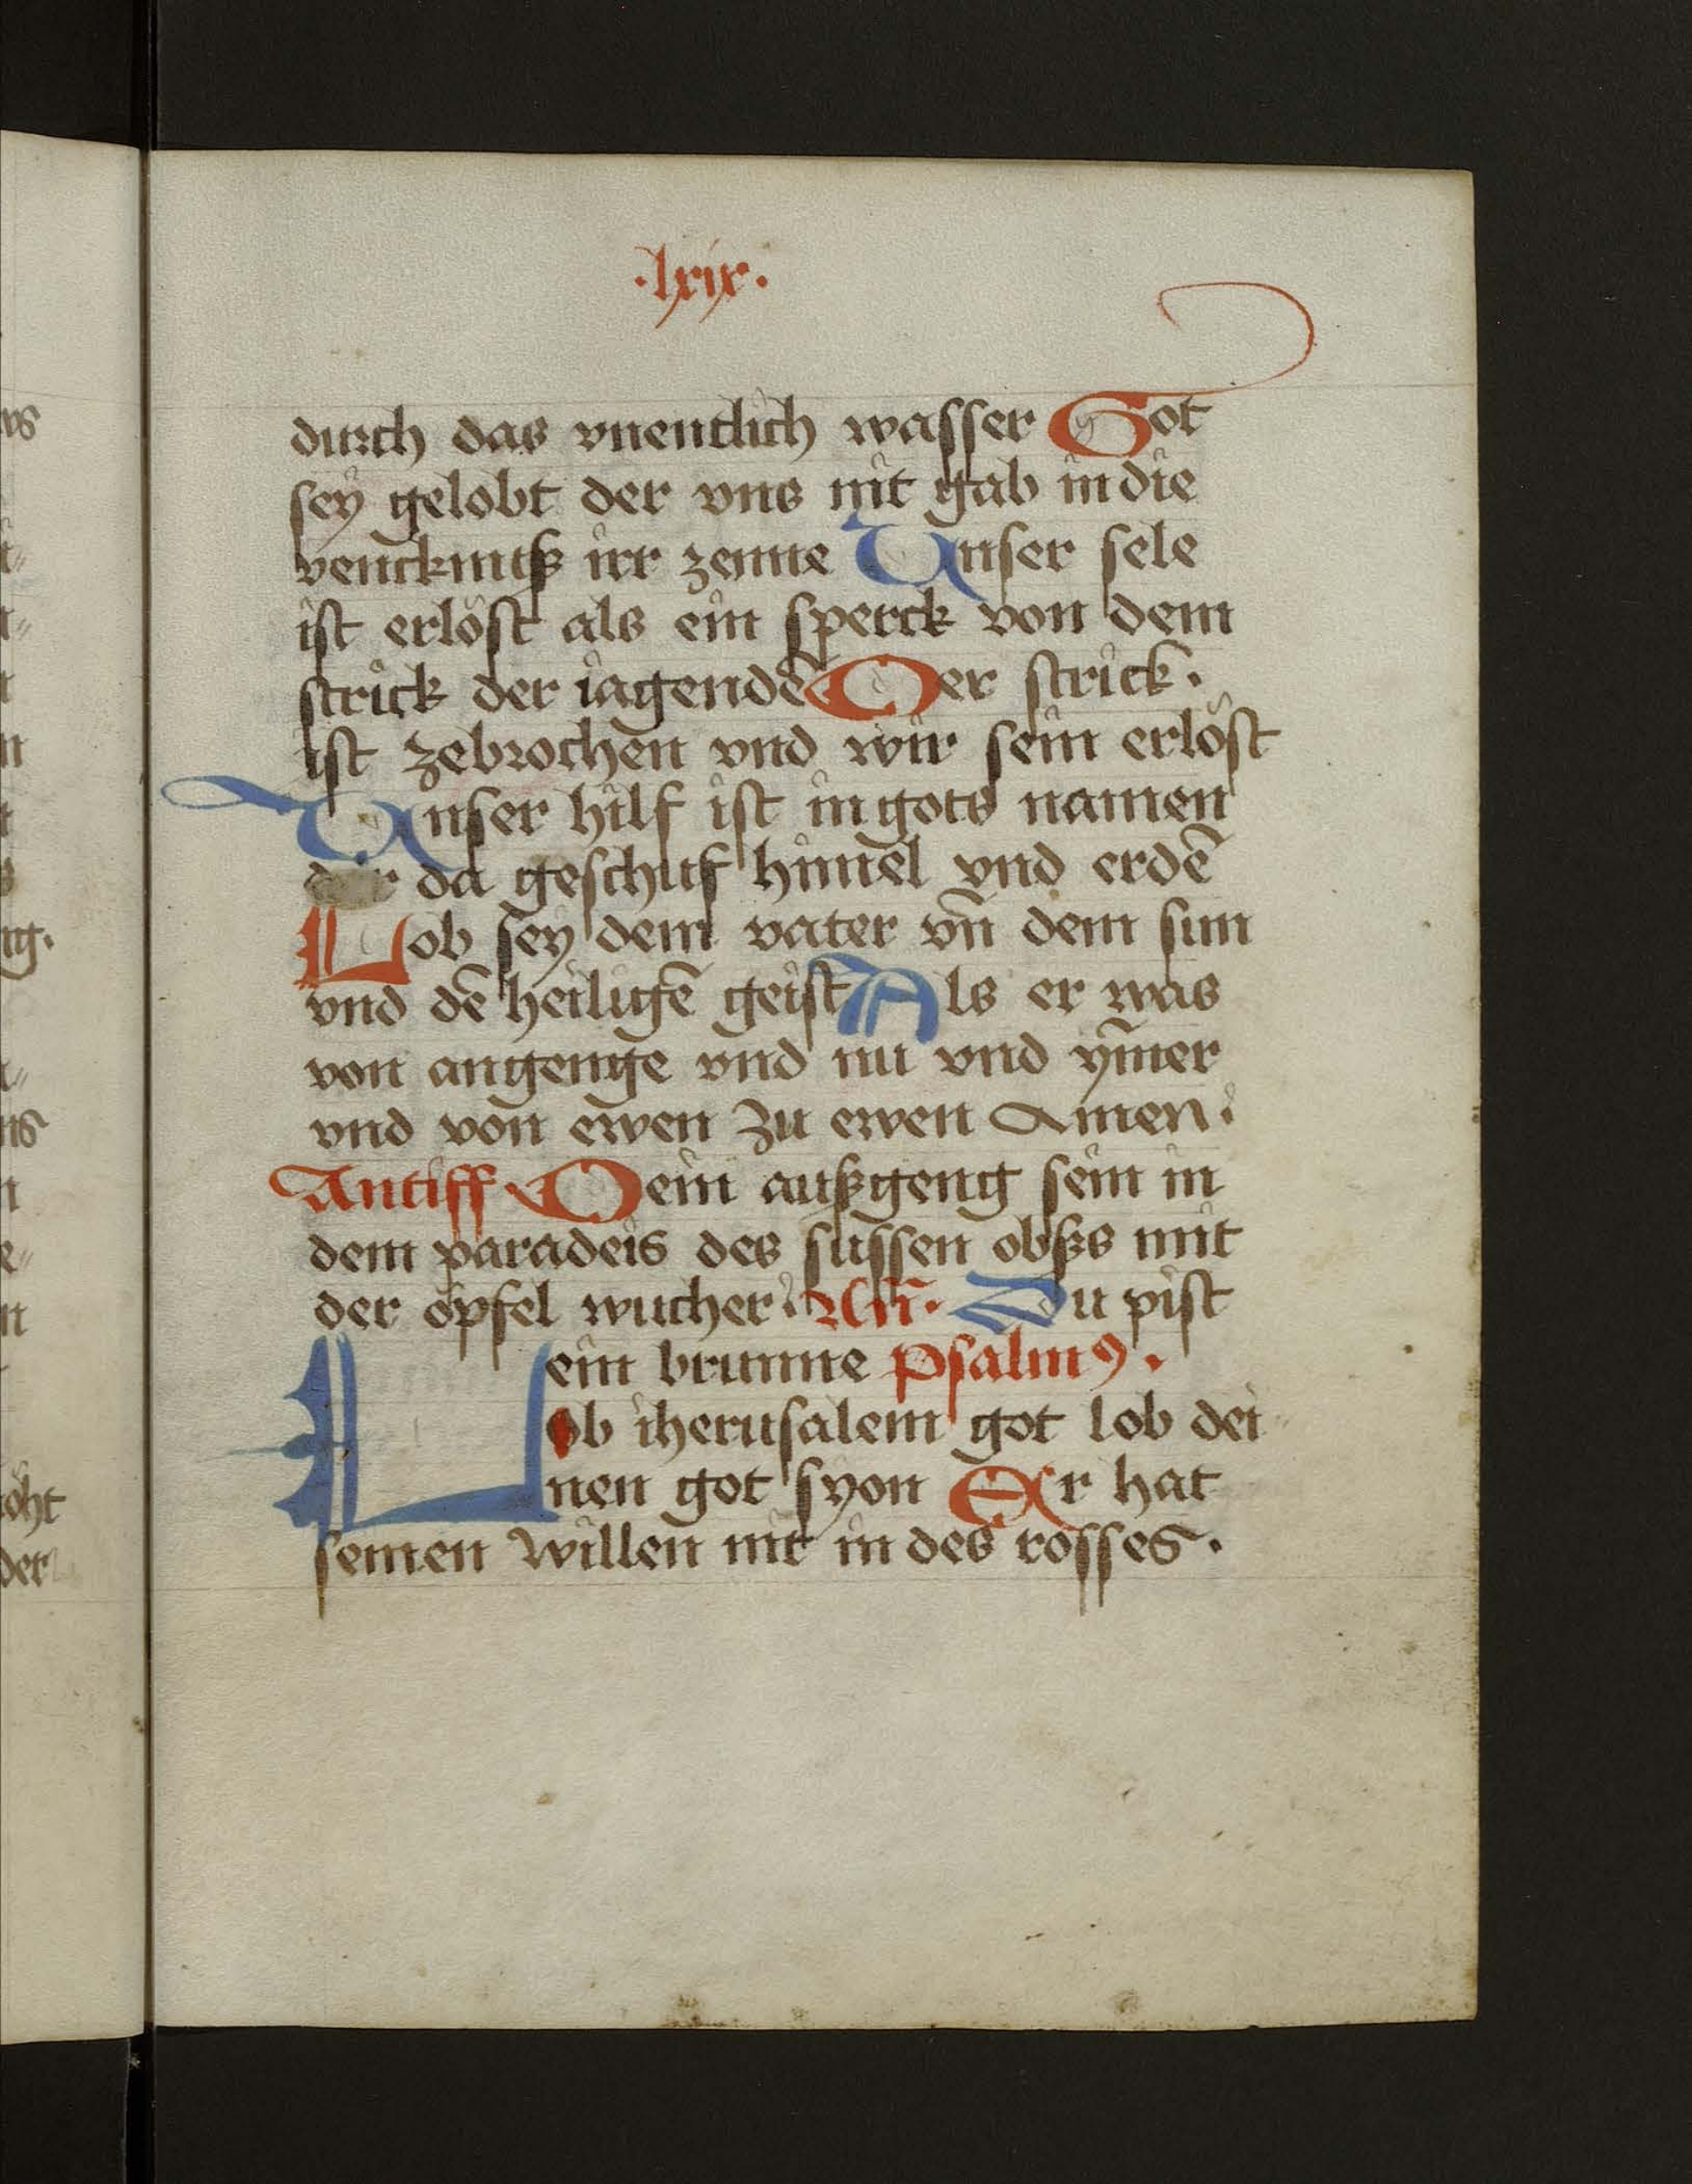 ·lxix·
durch das vnentlich wasser Got
sey gelobt der vns nit gab in die
venckniß irr zenne Vnser sele
ist erlöst als ein sperck von dem
strick der iagendē Der strick·
ist zebrochen vnd wir sein erlöst
Vnser hilf ist in gots namen
der da geschuf himel vnd erdē
Lob sey dem vater vn̄ dem sun
vnd dē heiligē geist Als er was
von angenge vnd nu vnd ym̄er
vnd von ewen zu ewen Amen·
Antiff Dein außgeng sein in
dem paradeis des sussen obßs mit
der öpfel wucher· Du pist
ein brunne psalmꝰ·
Lob iherusalem got lob dei
nen got syon Er hat
seinen willen nit in des rosses·